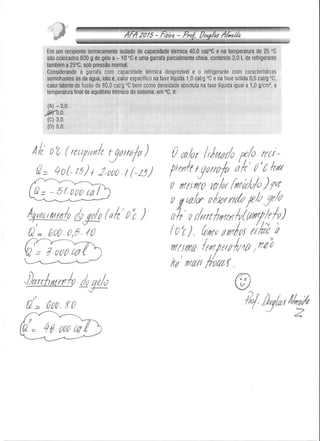 AFA 2015 - Física - Prof. Douglas Almeida
Em um recipiente termicamente isolado de capacidade térmica 40,0 cal/ºC e na temperatura de 25 °C
são colocados 600 g de gelo a – 10 °C e uma garrafa parcialmente cheia, contendo 2,0 L de refrigerante
também a 25ºC, sob pressão normal.
Considerando a garrafa com capacidade térmica desprezível e o refrigerante com características
semelhantes às da água, isto é, calor específico na fase líquida 1,0 cal/g ºC e na fase sólida 0,5 cal/g ºC,
calor latente de fusão de 80,0 cal/g ºC bem como densidade absoluta na fase líquida igual a 1,0 g/cm³, a
temperatura final de equilíbrio térmico do sistema, em ºC, é:
(A) – 3,0.
0,0.
(C) 3,0.
(D) 5,0.
Até 0°C (recipiente + garrafa)
Q = 40(-25) + 2.000.1(-25)
Q = - 51.000 cal
Aquecimento do gelo (até 0°C)
Q' = 600.0,5.10
Q' = 3.000 cal
Derretimento do gelo
Q'' = 600.80
Q'' = 48.000 cal
O calor liberado pelo reci-
piente + garrafa até 0°C tem
o mesmo valor (módulo) que
o calor absorvido pelo gelo
até o derretimento (completo)
(0°C). Como ambos estão a
mesma temperatura, não
há mais trocas.
Prof. Douglas Almeida